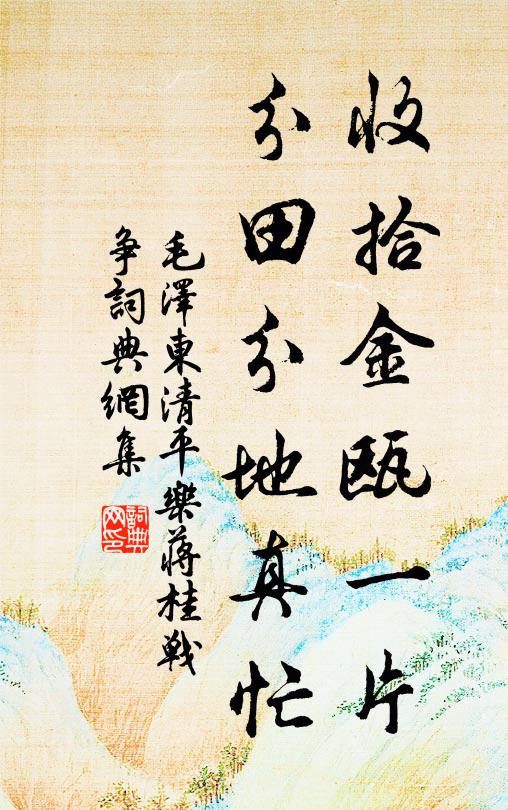 收拾金甌一片
分田分地真忙
毛澤東清平樂蔣桂戦
争詞典網集
詞典
网印